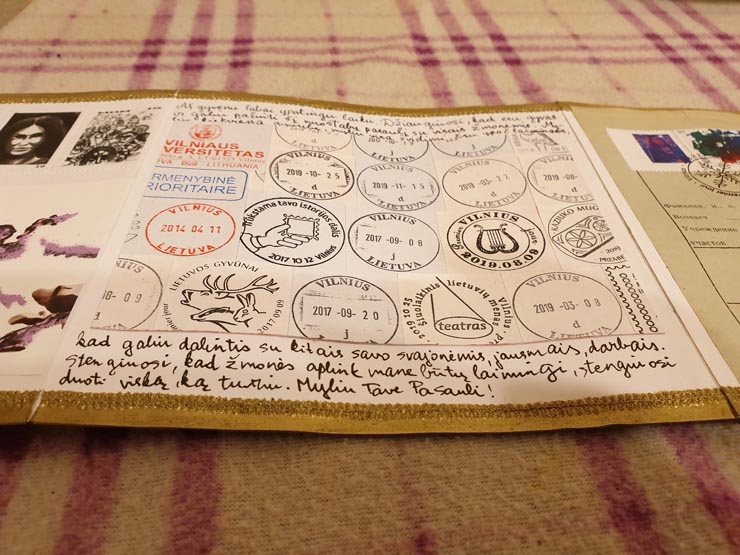 Aš gyvenu labai ypatingu laiku. Džiaugiuosi, kad esu gyvas
ir galiu pažinti šį nuostabų pasaulį su visais žmonėmis. Už
VILNIAUS
VERSITETAS
LITHUANIA
RMENYBINĖ
RIORITAIRE
VILNIUS
2019-10-25
d
LIETUVA
VILNIUS
2019-11-15
d
LIETUVA
VILNIUS
2019-03-22
d
LIETUVA
VILNIUS
2019-08-
d
VILNIUS
2014 04 11
LIETUVA
tavo istorijos dalis
2017 10 12 Vilnius
VILNIUS
2017-09-08
j
LIETUVA
VILNIUS
2019.08.09
KAZIUKO MUG
2019
8-09
LIETUVA
LIETUVOS GYVŪNAI
2017 09 09
VILNIUS
2017-09-20
j
LIETUVA
Šiuolaikinis lietuvių menas.
teatras
Vilnius
VILNIUS
2019-03-08
d
LIETUVA
kad galiu dalintis su kitais savo svajonėmis, jausmais, darbais.
Stengiuosi, kad žmonės aplink mane būtų laimingi, stengiuosi
duoti viską, ką turiu. Myliu Tave Pasauli!
Фамилия, и., о.
Возраст
Учреждение
участок